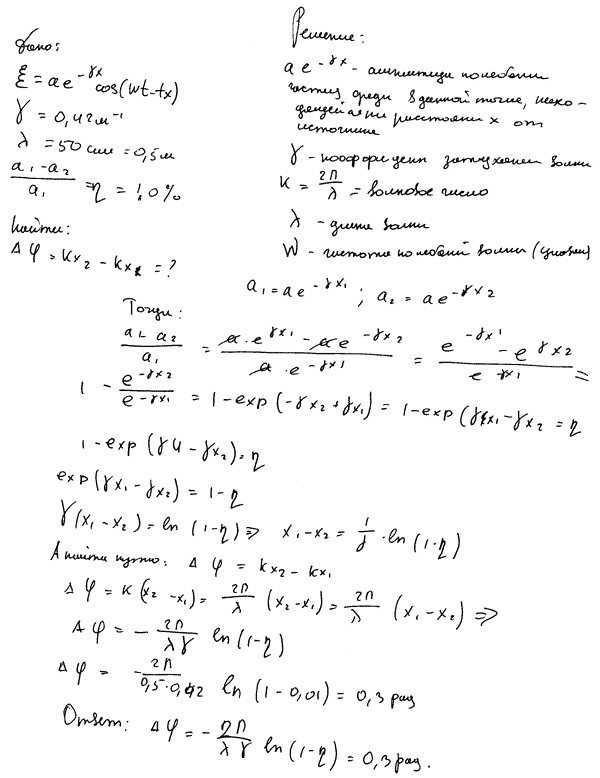 Дано:
ξ = ae^{-γx} cos(wt-tx)
γ = 0,42 м⁻¹
λ = 50 см = 0,5 м
(a₁-a₂)/a₁ = η = 1.0%
Найти:
Δφ = kx₂ - kx₁ = ?
Решение:
ae^{-γx} - амплитуда колебаний
частиц среды в данной точке, нахо-
дящейся на расстоянии x от
источника
γ - коэффициент затухания волны
K = 2π/λ = волновое число
λ - длина волны
W - частота колебаний волны
a₁ = ae^{-γx₁}; a₂ = ae^{-γx₂}
Тогда:
(a₁ a₂)/a₁ = (a·e^{γx₁} - ae^{-γx₂})/(a·e^{-γx₁}) = (e^{-γx₁} - e^{γx₂})/e^{γx₁} =
1 - e^{-γx₂}/e^{-γx₁} = 1-exp(-γx₂+γx₁) = 1-exp(γx₁-γx₂ = η
1-exp(γ4-γx₂)=η
exp(γx₁-γx₂) = 1-η
γ(x₁-x₂) = ln(1-η) => x₁-x₂ = 1/γ · ln(1-η)
А найти нужно: Δφ = kx₂ - kx₁
Δφ = K(x₂-x₁) = 2π/λ (x₂-x₁) = 2π/λ (x₁-x₂) =>
Δφ = - 2π/λγ ln(1-η)
Δφ = - 2π/0,5·0,42 ln(1-0,01) = 0,3 рад
Ответ: Δφ = - 2π/λγ ln(1-η) = 0,3 рад.